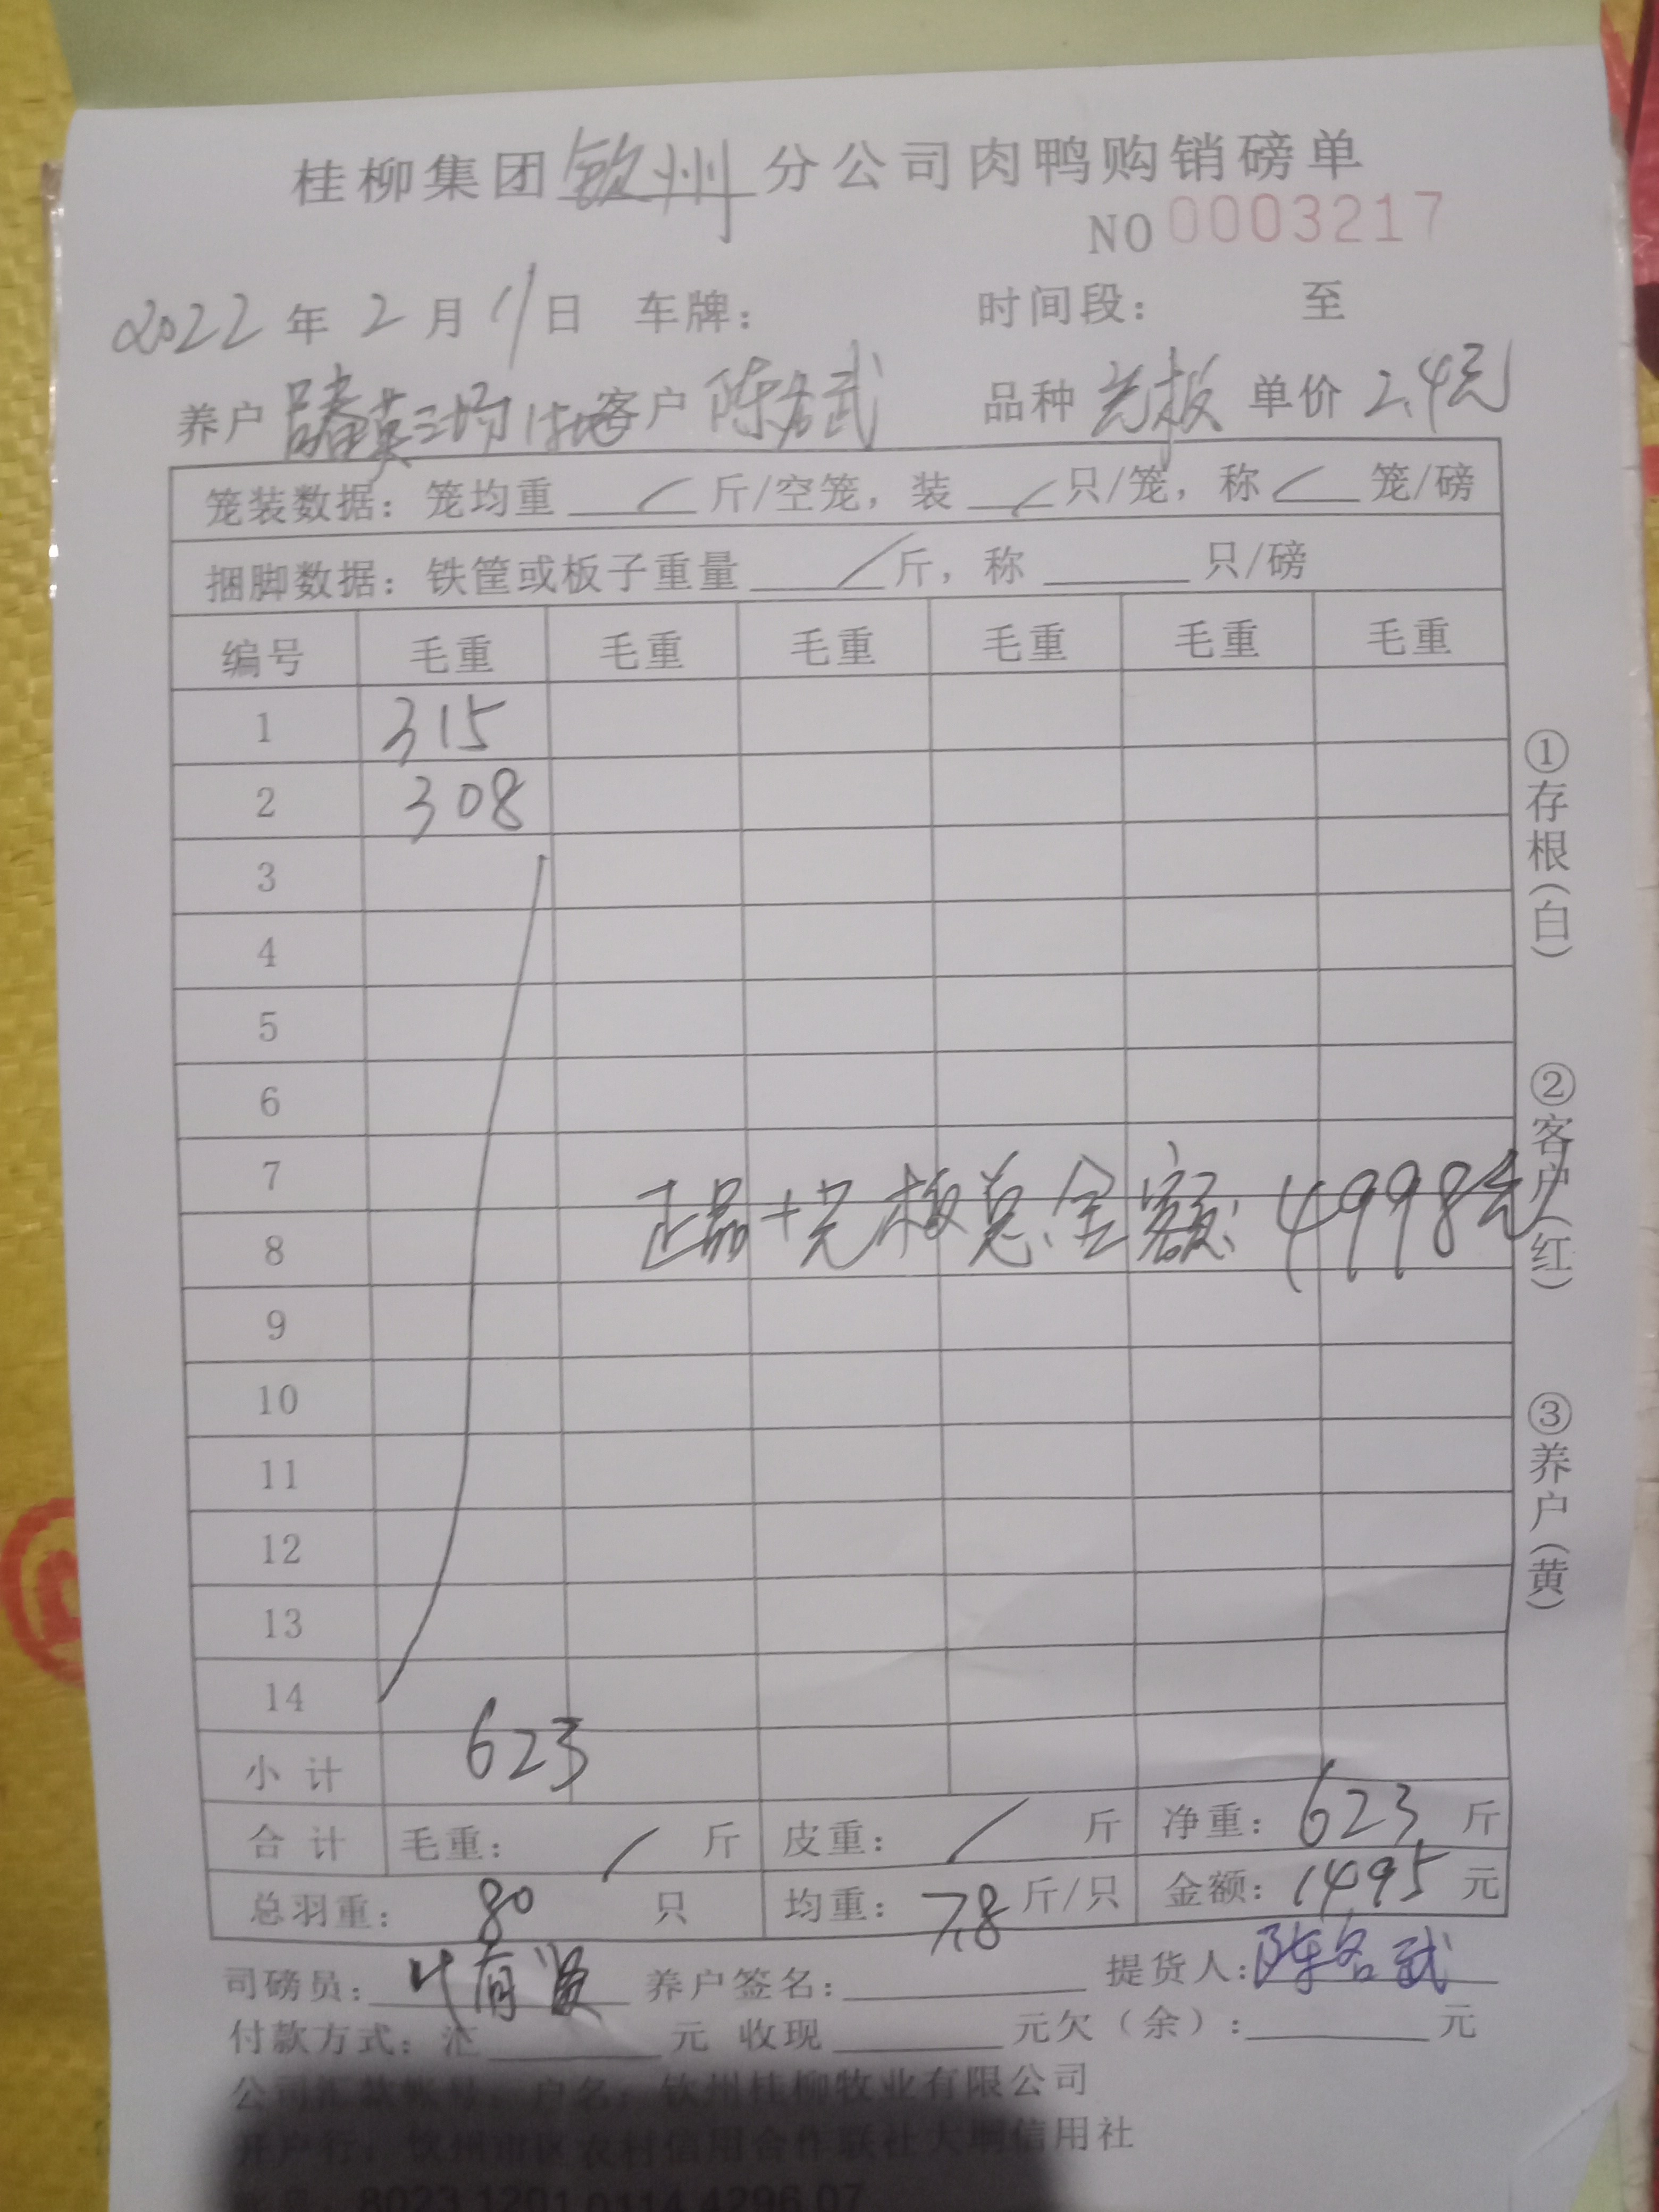 桂柳集团钦州分公司肉鸭购销磅单
NO 0003217
2022年2月11日 车牌： 时间段： 至
养户 客户 陈名武 品种 光板 单价 2.4元
笼装数据：笼均重 / 斤/空笼，装 / 只/笼，称 / 笼/磅
捆脚数据：铁筐或板子重量 / 斤，称 只/磅
编号 毛重 毛重 毛重 毛重 毛重 毛重
1 315
2 308
3
4
5
6
7
正品+光板总金额：4998元
8
9
10
11
12
13
14
小计 623
合计 毛重： / 斤 皮重： / 斤 净重：623 斤
总羽重：80 只 均重：7.8 斤/只 金额：1495 元
司磅员：叶有 养户签名： 提货人：陈名武
付款方式：汇 元 收现 元欠（余）： 元
公司汇款账号：户名：钦州桂柳牧业有限公司
开户行：钦州市区农村信用合作联社大垌信用社
账号：8023 1201 0114 4296 07
①存根（白）
②客户（红）
③养户（黄）